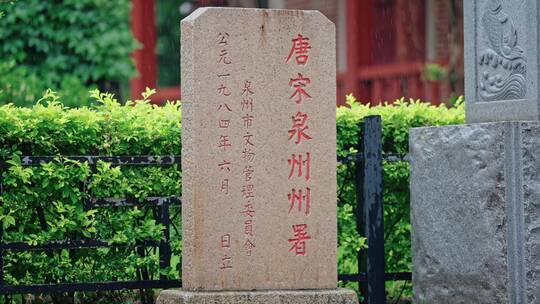 唐宋泉州州署
泉州市文物管理委員會
公元一九八四年六月 日立